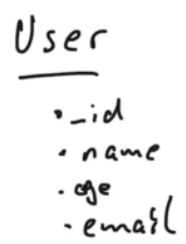 User
• _id
• name
• age
• email